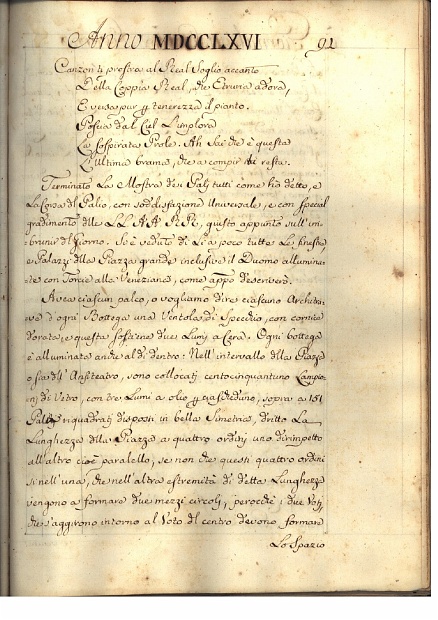 Anno MDCCLXVI 91
Canzon ti prostra al Real Soglio accanto
Della Coppia Real, che Etruria adora,
E versa pur p tenerezza il pianto.
Poscia dal Ciel l'implora
La sospirata Prole. Ah sai che è questa
L'ultima brama, che a compir ti resta.
Terminata la Mostra de i Palj tutti come hò detto, e
la Corsa del Palio, con soddisfazione Universale, e con special
gradimento delle LL. AA. RR., questo appunto sull'im-
:brunir del Giorno. Se è veduto di lì a poco tutte le finestre
e Palazzi della Piazza grande inclusive il Duomo allumina-
:te con Torcie alla Veneziana, come app.o descriverò.
Avea ciascun palco, o vogliamo dire ciascuno Archita-
:ve d'ogni Bottega una Ventola di Specchio, con cornice
dorata, e questa sosteneva due Lumi a Cera. Ogni bottega
è alluminata anche al di dentro: Nell'intervallo della Piazza
o sia dell'Anfiteatro, sono collocatj centocinquantuno Lampio-
:nj di Vetro, con tre Lumi a olio p ciascheduno, sopra a 151
riquadratj disposti in bella Simetria, dritto La
Lunghezza della Piazza a quattro ordinj uno dirimpetto
all'altro cioè paralelo, se non che questi quattro ordini
sì nell'una, che nell'altra estremità di detta Lunghezza
vengono a formare due mezzi circolj, perocchè i due Votj,
che s'aggirono intorno al Voto del centro devono formare
Lo Spazio